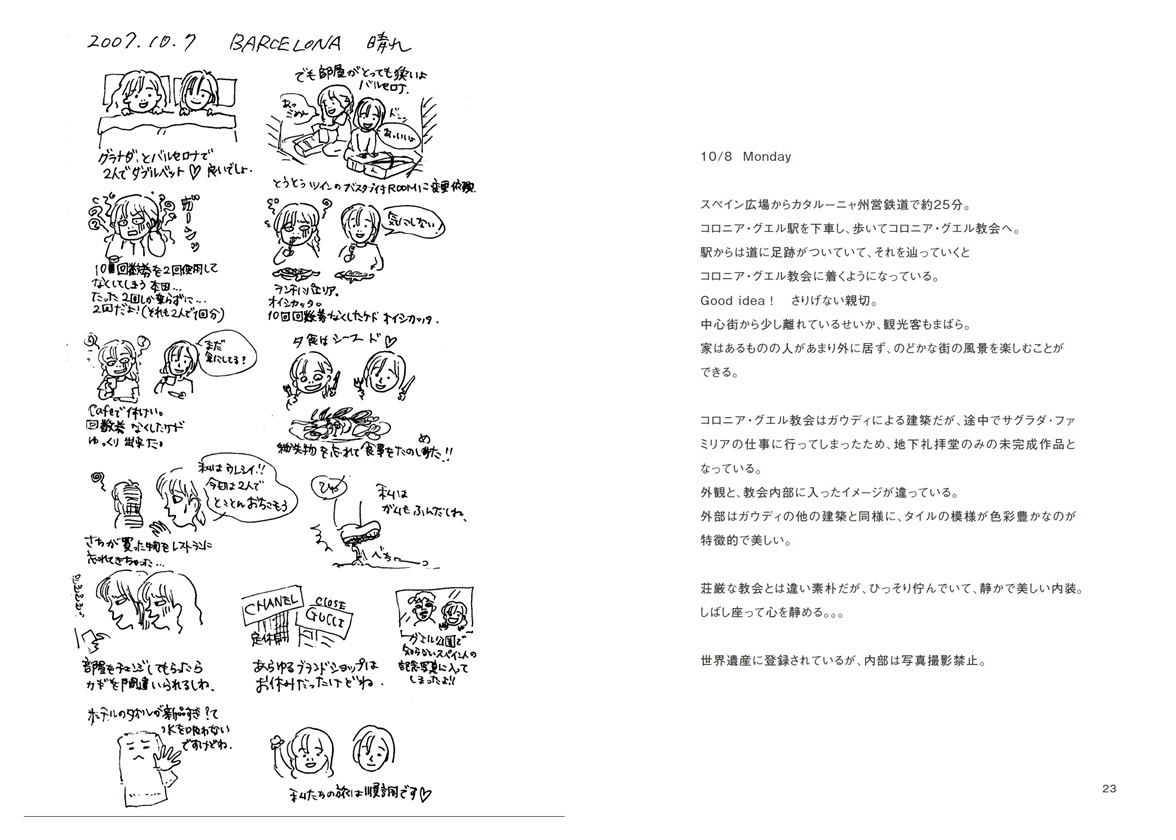 2007.10.7 BARCELONA 晴れ
グラナダとバルセロナで
2人でダブルベット♡ 良いでしょ.
でも部屋がとっても狭いよ
バルセロナ.
あっ
ごめん
ドン
あっいいよ
とうとうツインのバスタブ付ROOMに変更依頼.
ガーンッ
10回回数券を2回使用して
なくしてしまう本田...
たった2回しか乗らずに...
2回だよ!(それも2人で1回分)
気にしない!
ランチはパエリア。
オイシカッタ。
10回回数券なくしたケド オイシカッタ.
まだ
気にしてる?
Cafeで休けい。
回数券なくしたケド
ゆっくり出来た。
夕食はシーフード♡
紛失物を忘れて食事をたのしめた!!
私はウレシイ!!
今日は2人で
とことんおちこもう
さちが買った物をレストランに
忘れてきちゃった...
ひゅ〜
私は
ガムもふんだしね.
べちょ
部屋をチェンジしてもらったら
カギを間違いられるしね.
CHANEL
定休日
CLOSE
GUCCI
あらゆるブランドショップは
お休みだったけどね.
グエル公園で
知らないスペイン人の
記念写真に入って
しまったよ!!
ホテルのタオルが新品すぎ?て
水を吸わない
ですけどね.
私たちの旅は順調です♡
10/8 Monday
スペイン広場からカタルーニャ州営鉄道で約25分。
コロニア・グエル駅を下車し、歩いてコロニア・グエル教会へ。
駅からは道に足跡がついていて、それを辿っていくと
コロニア・グエル教会に着くようになっている。
Good idea！ さりげない親切。
中心街から少し離れているせいか、観光客もまばら。
家はあるものの人があまり外に居ず、のどかな街の風景を楽しむことが
できる。
コロニア・グエル教会はガウディによる建築だが、途中でサグラダ・ファ
ミリアの仕事に行ってしまったため、地下礼拝堂のみの未完成作品と
なっている。
外観と、教会内部に入ったイメージが違っている。
外部はガウディの他の建築と同様に、タイルの模様が色彩豊かなのが
特徴的で美しい。
荘厳な教会とは違い素朴だが、ひっそり佇んでいて、静かで美しい内装。
しばし座って心を静める。。。
世界遺産に登録されているが、内部は写真撮影禁止。
23